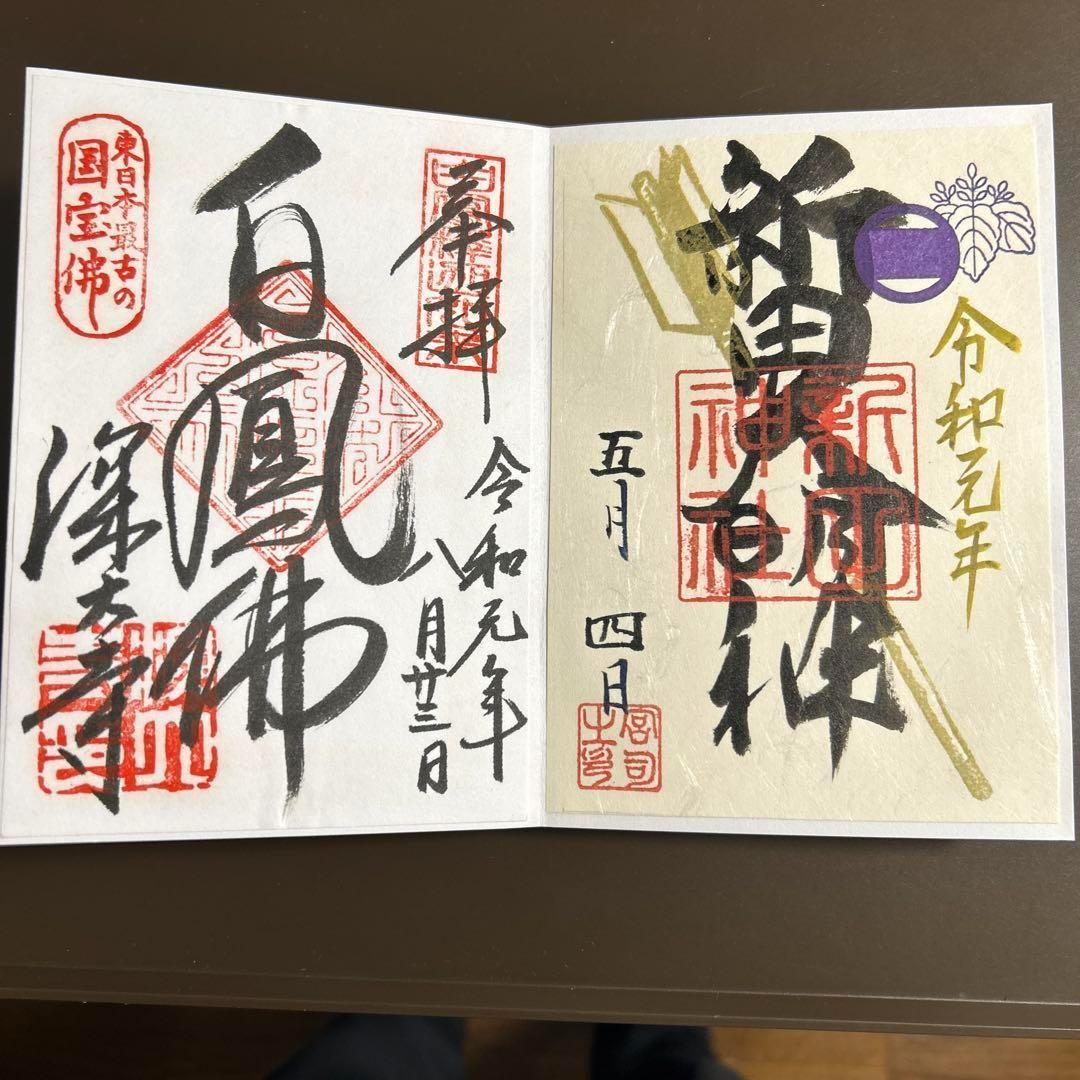 令和元年
新田大明神
新田神社
五月 四日
宮司之印
奉拝
令和元年
八月廿三日
白鳳佛
東日本最古の
国宝佛
深大寺